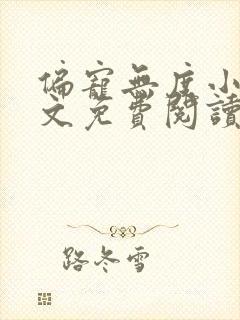 偏寵無度小
文免費閱讀
路冬雪